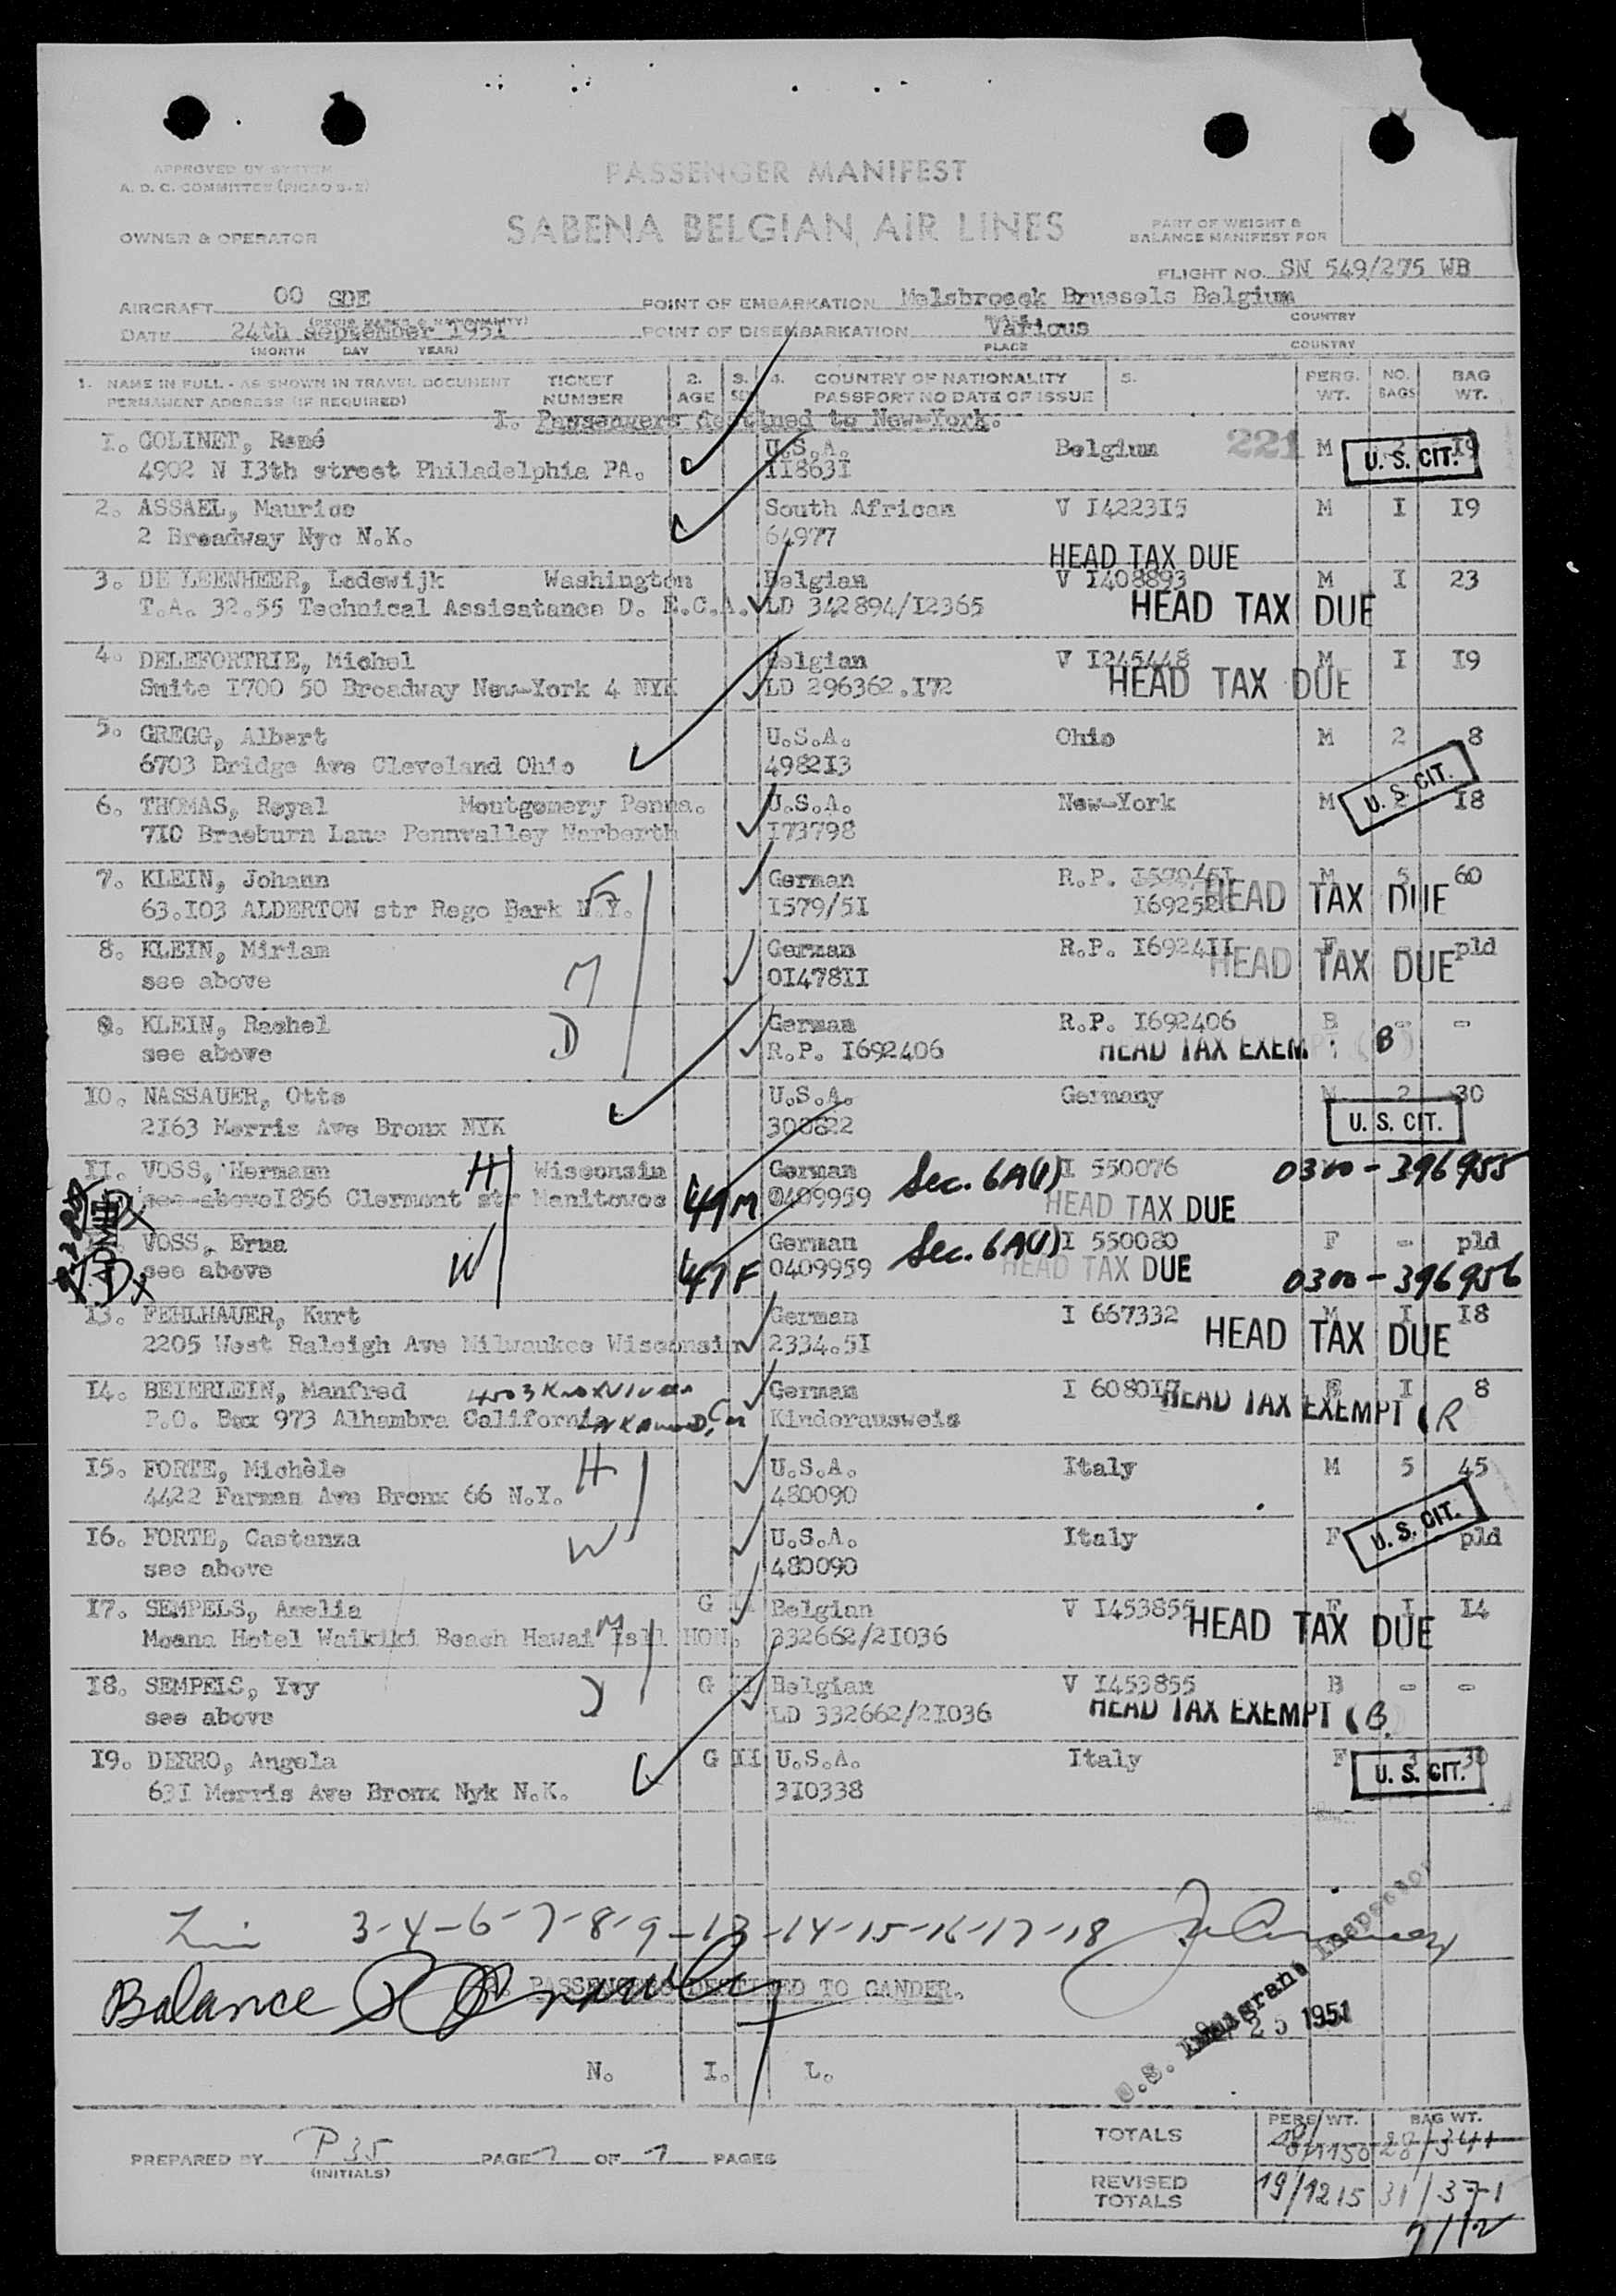 APPROVED BY SYSTEM
A. D. C. COMMITTEE (PICAO 9-2)
PASSENGER MANIFEST
SABENA BELGIAN AIR LINES
OWNER & OPERATOR
PART OF WEIGHT &
BALANCE MANIFEST FOR
FLIGHT NO. SN 549/275 WB
AIRCRAFT 00 SDE POINT OF EMBARKATION Melsbroeck Brussels Belgium
COUNTRY
DATE 24th September 1951 POINT OF DISEMBARKATION Various
(MONTH DAY YEAR) PLACE COUNTRY
1. NAME IN FULL - AS SHOWN IN TRAVEL DOCUMENT TICKET 2. 3. 4. COUNTRY OF NATIONALITY 5. PERS. NO. BAG
PERMANENT ADDRESS (IF REQUIRED) NUMBER AGE SEX PASSPORT NO DATE OF ISSUE WT. BAGS WT.
I. Passengers destined to New-York.
I. COLINET, René U.S.A. Belgium 221 M 2 I9
4902 N I3th street Philadelphia PA. II863I U. S. CIT.
2. ASSAEL, Maurice South African V I4223I5 M I I9
2 Broadway Nyc N.K. 64977
HEAD TAX DUE
3. DE LEENHEER, Lodewijk Washington Belgian V I408893 M I 23
T.A. 32.55 Technical Assisatance D. E.C.A. LD 342894/I2365 HEAD TAX DUE
4. DELEFORTRIE, Michel Belgian V I245448 M I I9
Suite I700 50 Broadway New-York 4 NYK LD 296362.I72 HEAD TAX DUE
5. GREGG, Albert U.S.A. Ohio M 2 8
6703 Bridge Ave Cleveland Ohio 4982I3
U. S. CIT.
6. THOMAS, Royal Moutgomery Penna. U.S.A. New-York M 2 I8
7I0 Braeburn Lane Pennvalley Narberth I73798
7. KLEIN, Johann German R.P. I579/5I M 5 60
63.I03 ALDERTON str Rego Bark N.Y. F I579/5I HEAD TAX DUE
8. KLEIN, Miriam German R.P. I6924II F - pld
see above M 0I478II HEAD TAX DUE
9. KLEIN, Rachel German R.P. I692406 B - -
see above D R.P. I692406 HEAD TAX EXEMPT (B)
I0. NASSAUER, Otto U.S.A. Germany M 2 30
2I63 Morris Ave Bronx NYK 300822 U. S. CIT.
II. VOSS, Hermann H Wisconsin German Sec. 6A(1) I 550076 0300-396955
see above I856 Clermont str Manitowoc 49 M 0409959 HEAD TAX DUE
VOSS, Erna German Sec. 6A(1) I 550080 F - pld
see above W 47 F 0409959 HEAD TAX DUE 0300-396956
I3. FEHLHAUER, Kurt German I 667332 M I I8
2205 West Raleigh Ave Milwaukee Wisconsin 2334.5I HEAD TAX DUE
I4. BEIERLEIN, Manfred German I I 8
P.O. Box 973 Alhambra California Kinderausweis HEAD TAX EXEMPT (R
I5. FORTE, Michèle H U.S.A. Italy M 5 45
4422 Furman Ave Bronx 66 N.Y. 480090
U. S. CIT.
I6. FORTE, Castanza W U.S.A. Italy F pld
see above 480090
I7. SEMPELS, Amelia G Belgian V I453855 F I I4
Moana Hotel Waikiki Beach Hawai Isll HON. M 332662/2I036 HEAD TAX DUE
I8. SEMPELS, Yvy G Belgian V I453855 B - -
see above D LD 332662/2I036 HEAD TAX EXEMPT (B.
I9. DERRO, Angela G II U.S.A. Italy F 3 30
63I Morris Ave Bronx Nyk N.K. 3I0338 U. S. CIT.
3-4-6-7-8-9-13-14-15-16-17-18
PASSENGERS DESTINED TO GANDER.
Balance
U.S. Immigrant Inspector
25 1951
N. I. L.
TOTALS PERS WT. BAG WT.
28/341
PREPARED BY P35 PAGE 1 OF 1 PAGES
(INITIALS)
REVISED TOTALS 19/1215 31/371
7/12